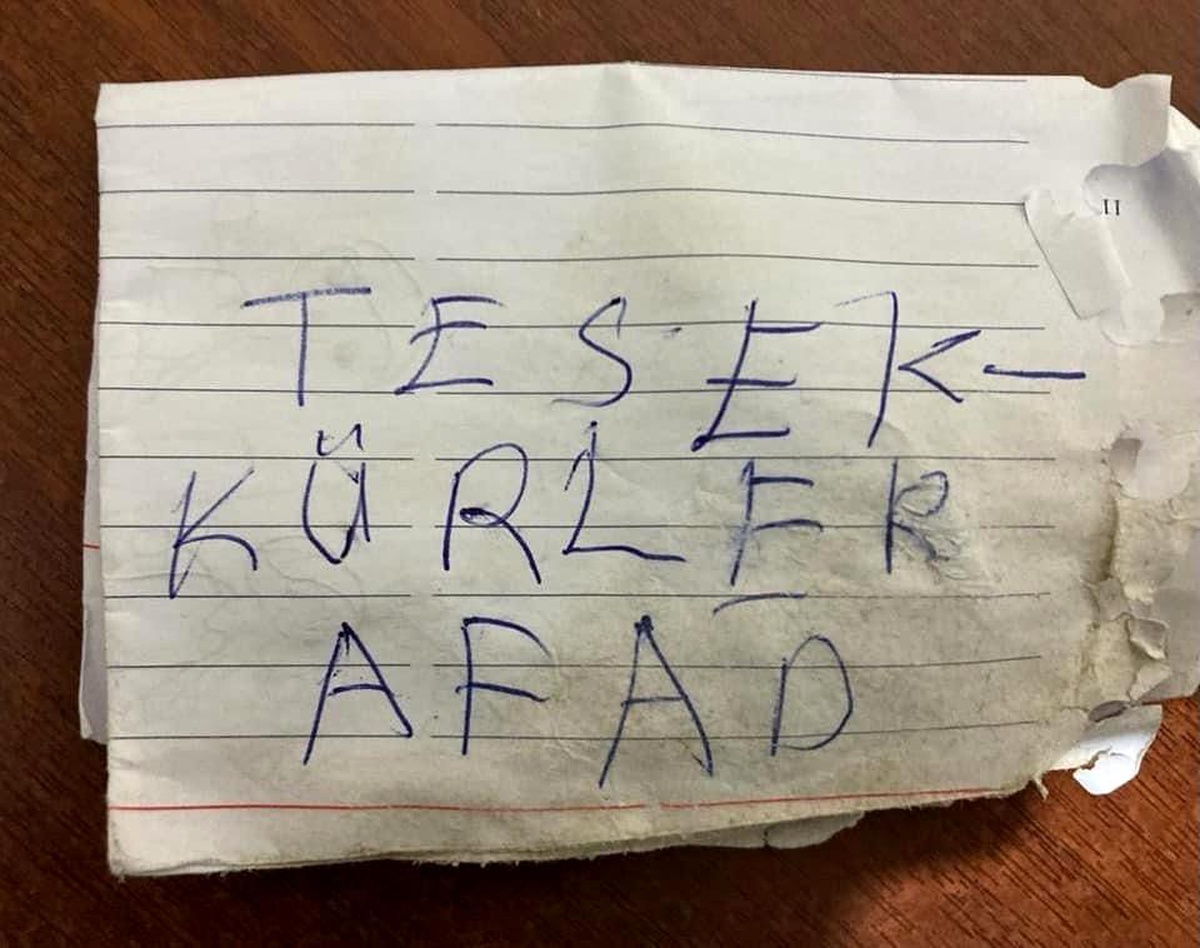 TESEK-
KÜRLER
AFAD
II